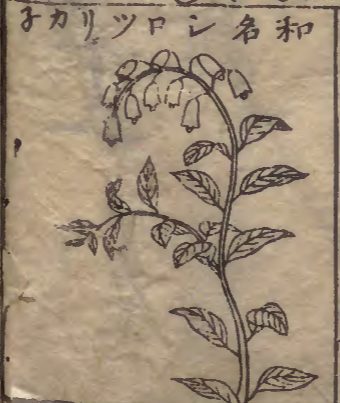 和名シロツリカ子